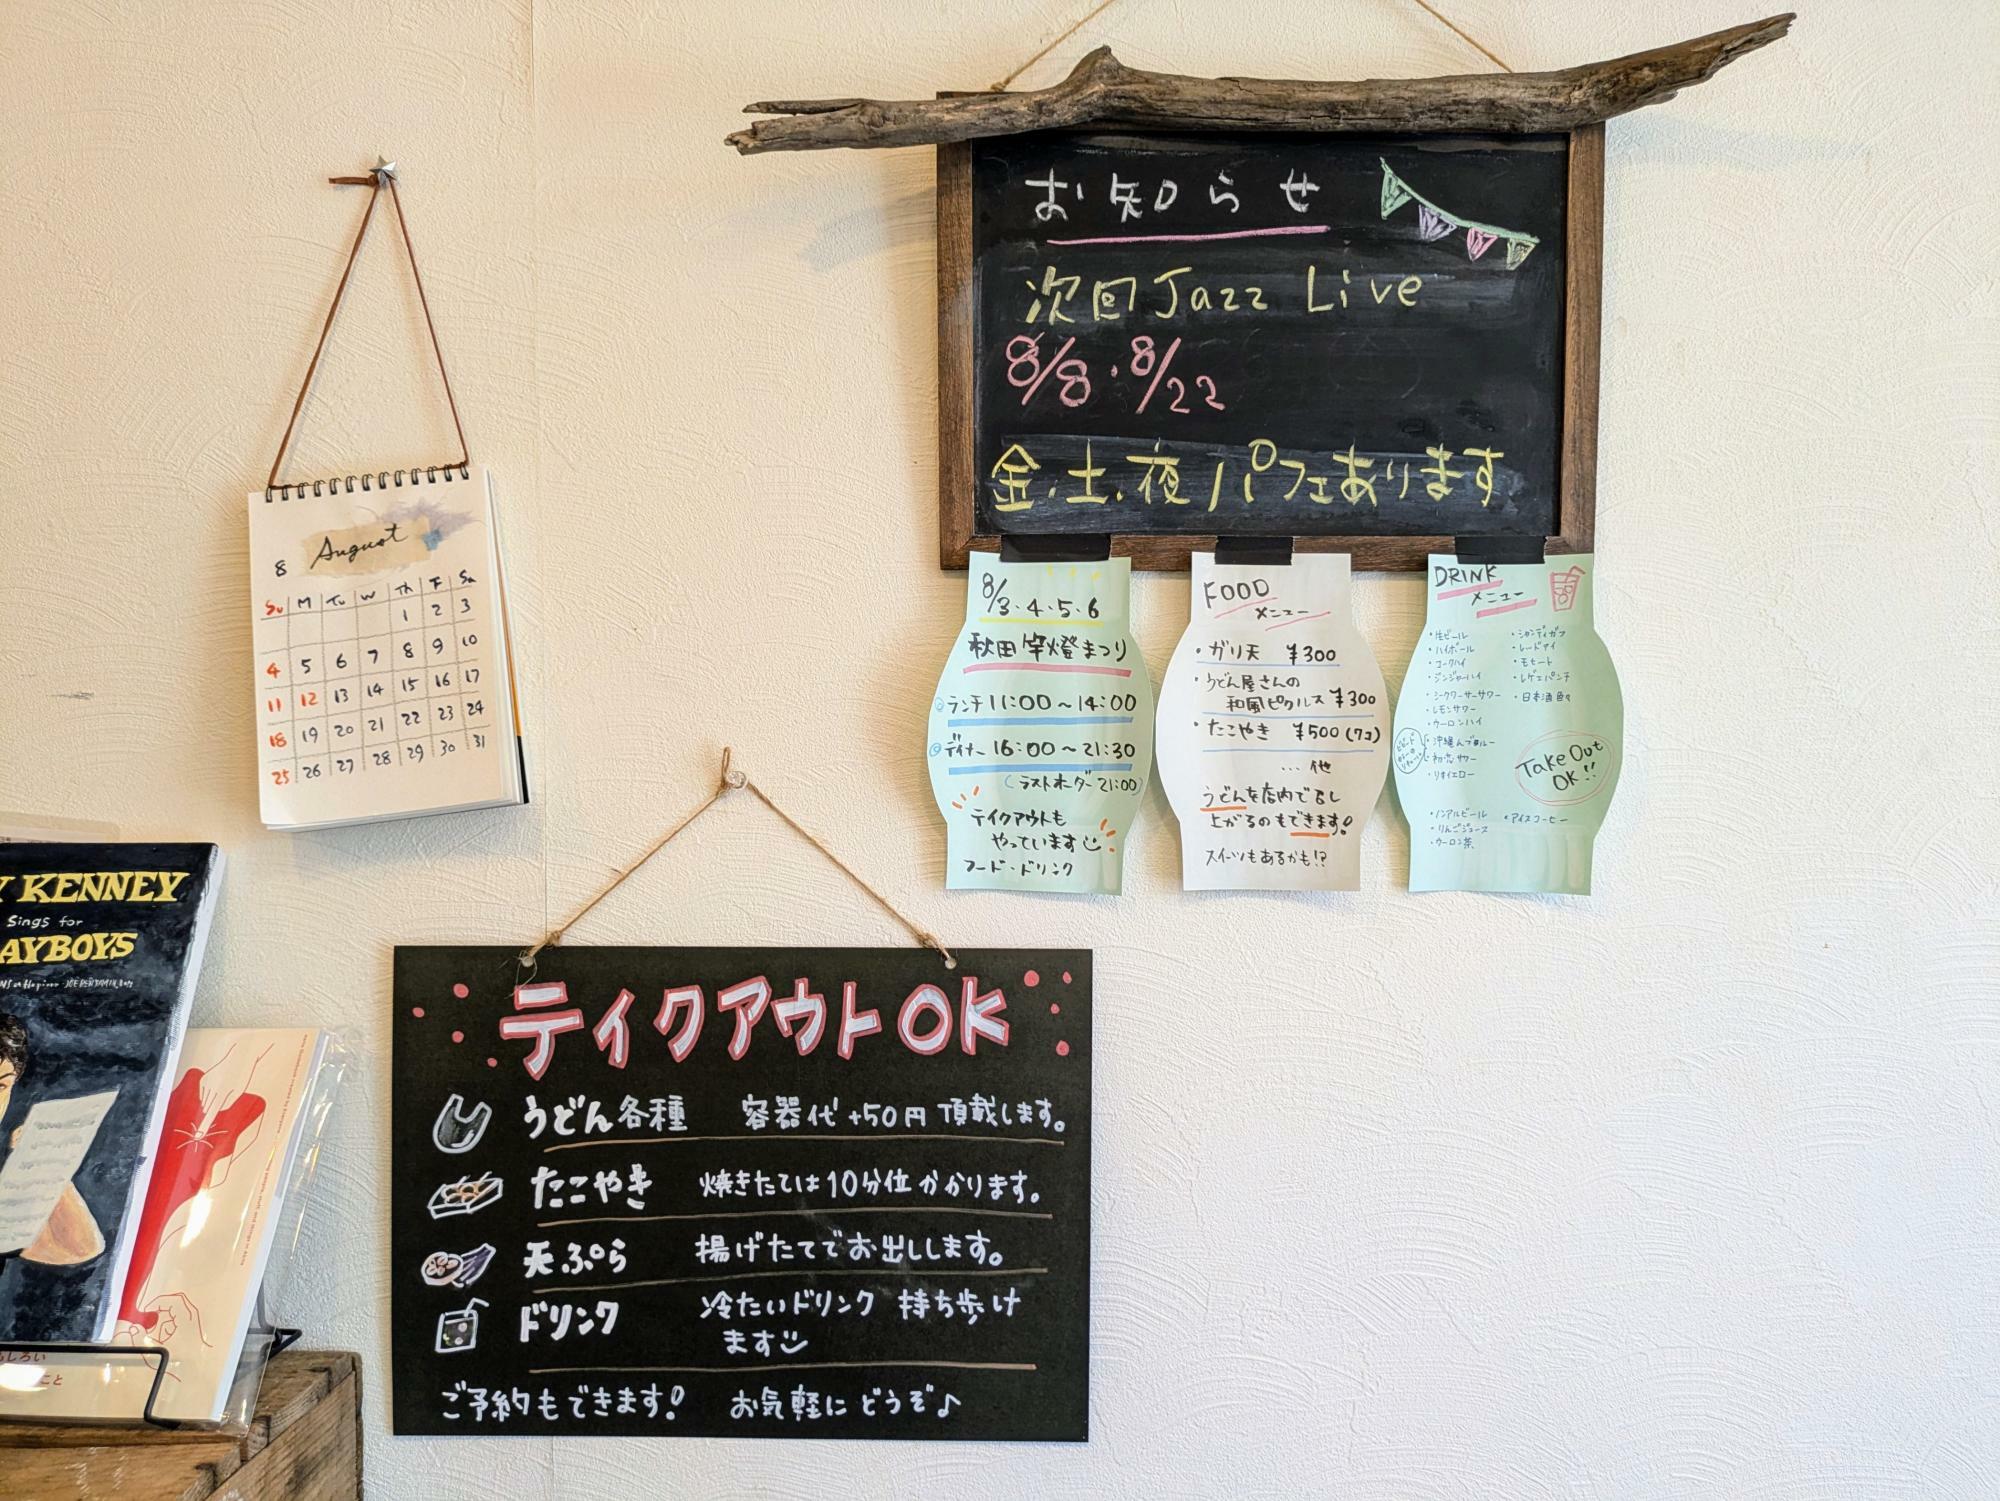 お知らせ
次回 Jazz Live
8/8・8/22
金・土・夜 パフェあります
8 August
Su M Tu W Th F Sa
1 2 3
4 5 6 7 8 9 10
11 12 13 14 15 16 17
18 19 20 21 22 23 24
25 26 27 28 29 30 31
8/3・4・5・6
秋田竿燈まつり
ランチ 11:00～14:00
ディナー 16:00～21:30
(ラストオーダー 21:00)
テイクアウトも
やっています
フード・ドリンク
FOOD
メニュー
・ガリ天 ¥300
・うどん屋さんの
和風ピクルス ¥300
・たこやき ¥500(7コ)
...他
うどんを店内で召し
上がるのもできます!
スイーツもあるかも!?
DRINK
メニュー
・生ビール
・ハイボール
・コークハイ
・ジンジャーハイ
・シークワーサーサワー
・レモンサワー
・ウーロンハイ
・シャンディガフ
・レッドアイ
・モヒート
・レゲエパンチ
・日本酒色々
Take Out
OK!!
・ノンアルビール
・りんごジュース
・ウーロン茶
・アイスコーヒー
KENNEY
Sings for
AYBOYS
テイクアウトOK
うどん各種 容器代+50円頂戴します。
たこやき 焼きたては10分位かかります。
天ぷら 揚げたてでお出しします。
ドリンク 冷たいドリンク 持ち歩け
ます
ご予約もできます! お気軽にどうぞ♪